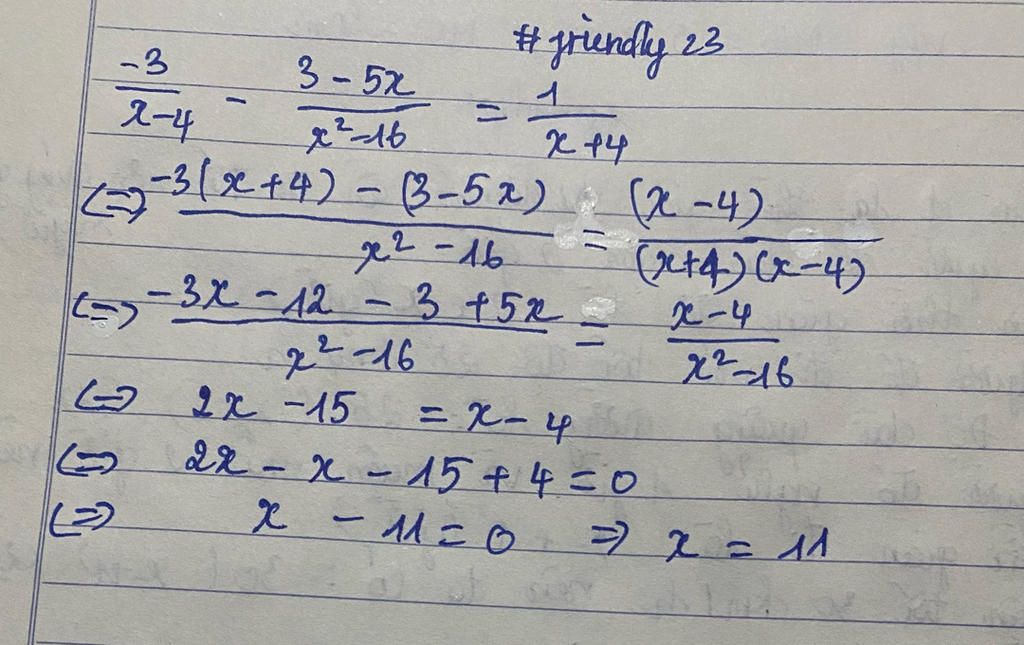 # friendly 23
-3/(x-4) - (3-5x)/(x²-16) = 1/(x+4)
(=) (-3(x+4) - (3-5x))/(x²-16) = (x-4)/((x+4)(x-4))
(=) (-3x-12-3+5x)/(x²-16) = (x-4)/(x²-16)
(=) 2x -15 = x-4
(=) 2x - x - 15 + 4 = 0
(=) x - 11 = 0 => x = 11